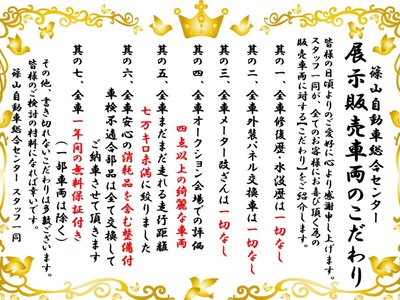 篠山自動車総合センター
展示販売車両のこだわり
皆様の日頃よりのご愛好に心より感謝申し上げます。
スタッフ一同が、全てのお客様にお喜び頂く為の
販売車両に対する【こだわり】をご紹介します。
其の一、全車修復歴・水没歴は一切なし
其の二、全車外装パネル交換車は一切なし
其の三、全車メーター改ざんは一切なし
其の四、全車オークション会場での評価
四点以上の綺麗な車両
其の五、全車まだまだ走れる走行距離
七万キロ未満に絞りました
其の六、全車安心の消耗品を含む整備付
車検不適合部品は全て交換して
ご納車させて頂きます
其の七、全車一年間の無料保証付き
(一部車両は除く)
その他、書き切れないこだわりは多数ございます。
皆様のご検討の材料になれば幸いです。
篠山自動車総合センター スタッフ一同